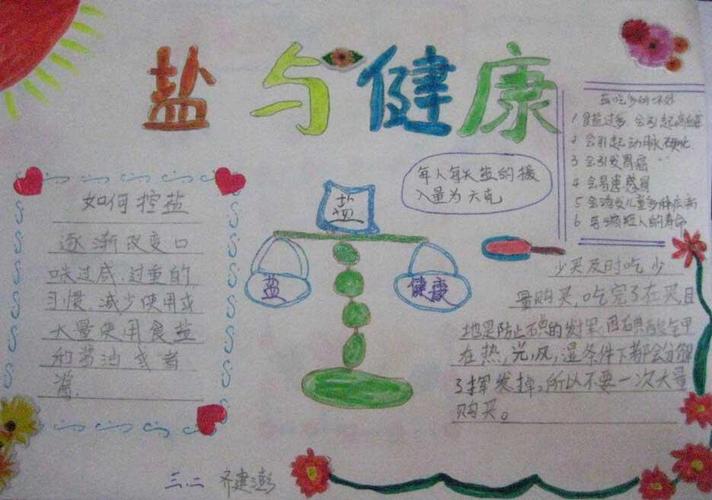 盐与健康
如何控盐
逐渐改变口
味过咸、过重的
习惯,减少使用或
大量使用食盐
的酱油或者
酱.
盐
盐
健康
每人每天盐的摄
入量为六克
盐吃多的坏处
1 食盐过多会引起高血压
2 会引起动脉硬化
3 会引发胃癌
4 会易患感冒
5 会
6 短人的寿命
少买及时吃少
量购买,吃完了在买目
地是防止
在热,光,风,湿条件下都会分解
了挥发掉,所以不要一次大量
购买。
三.二 齐建澎